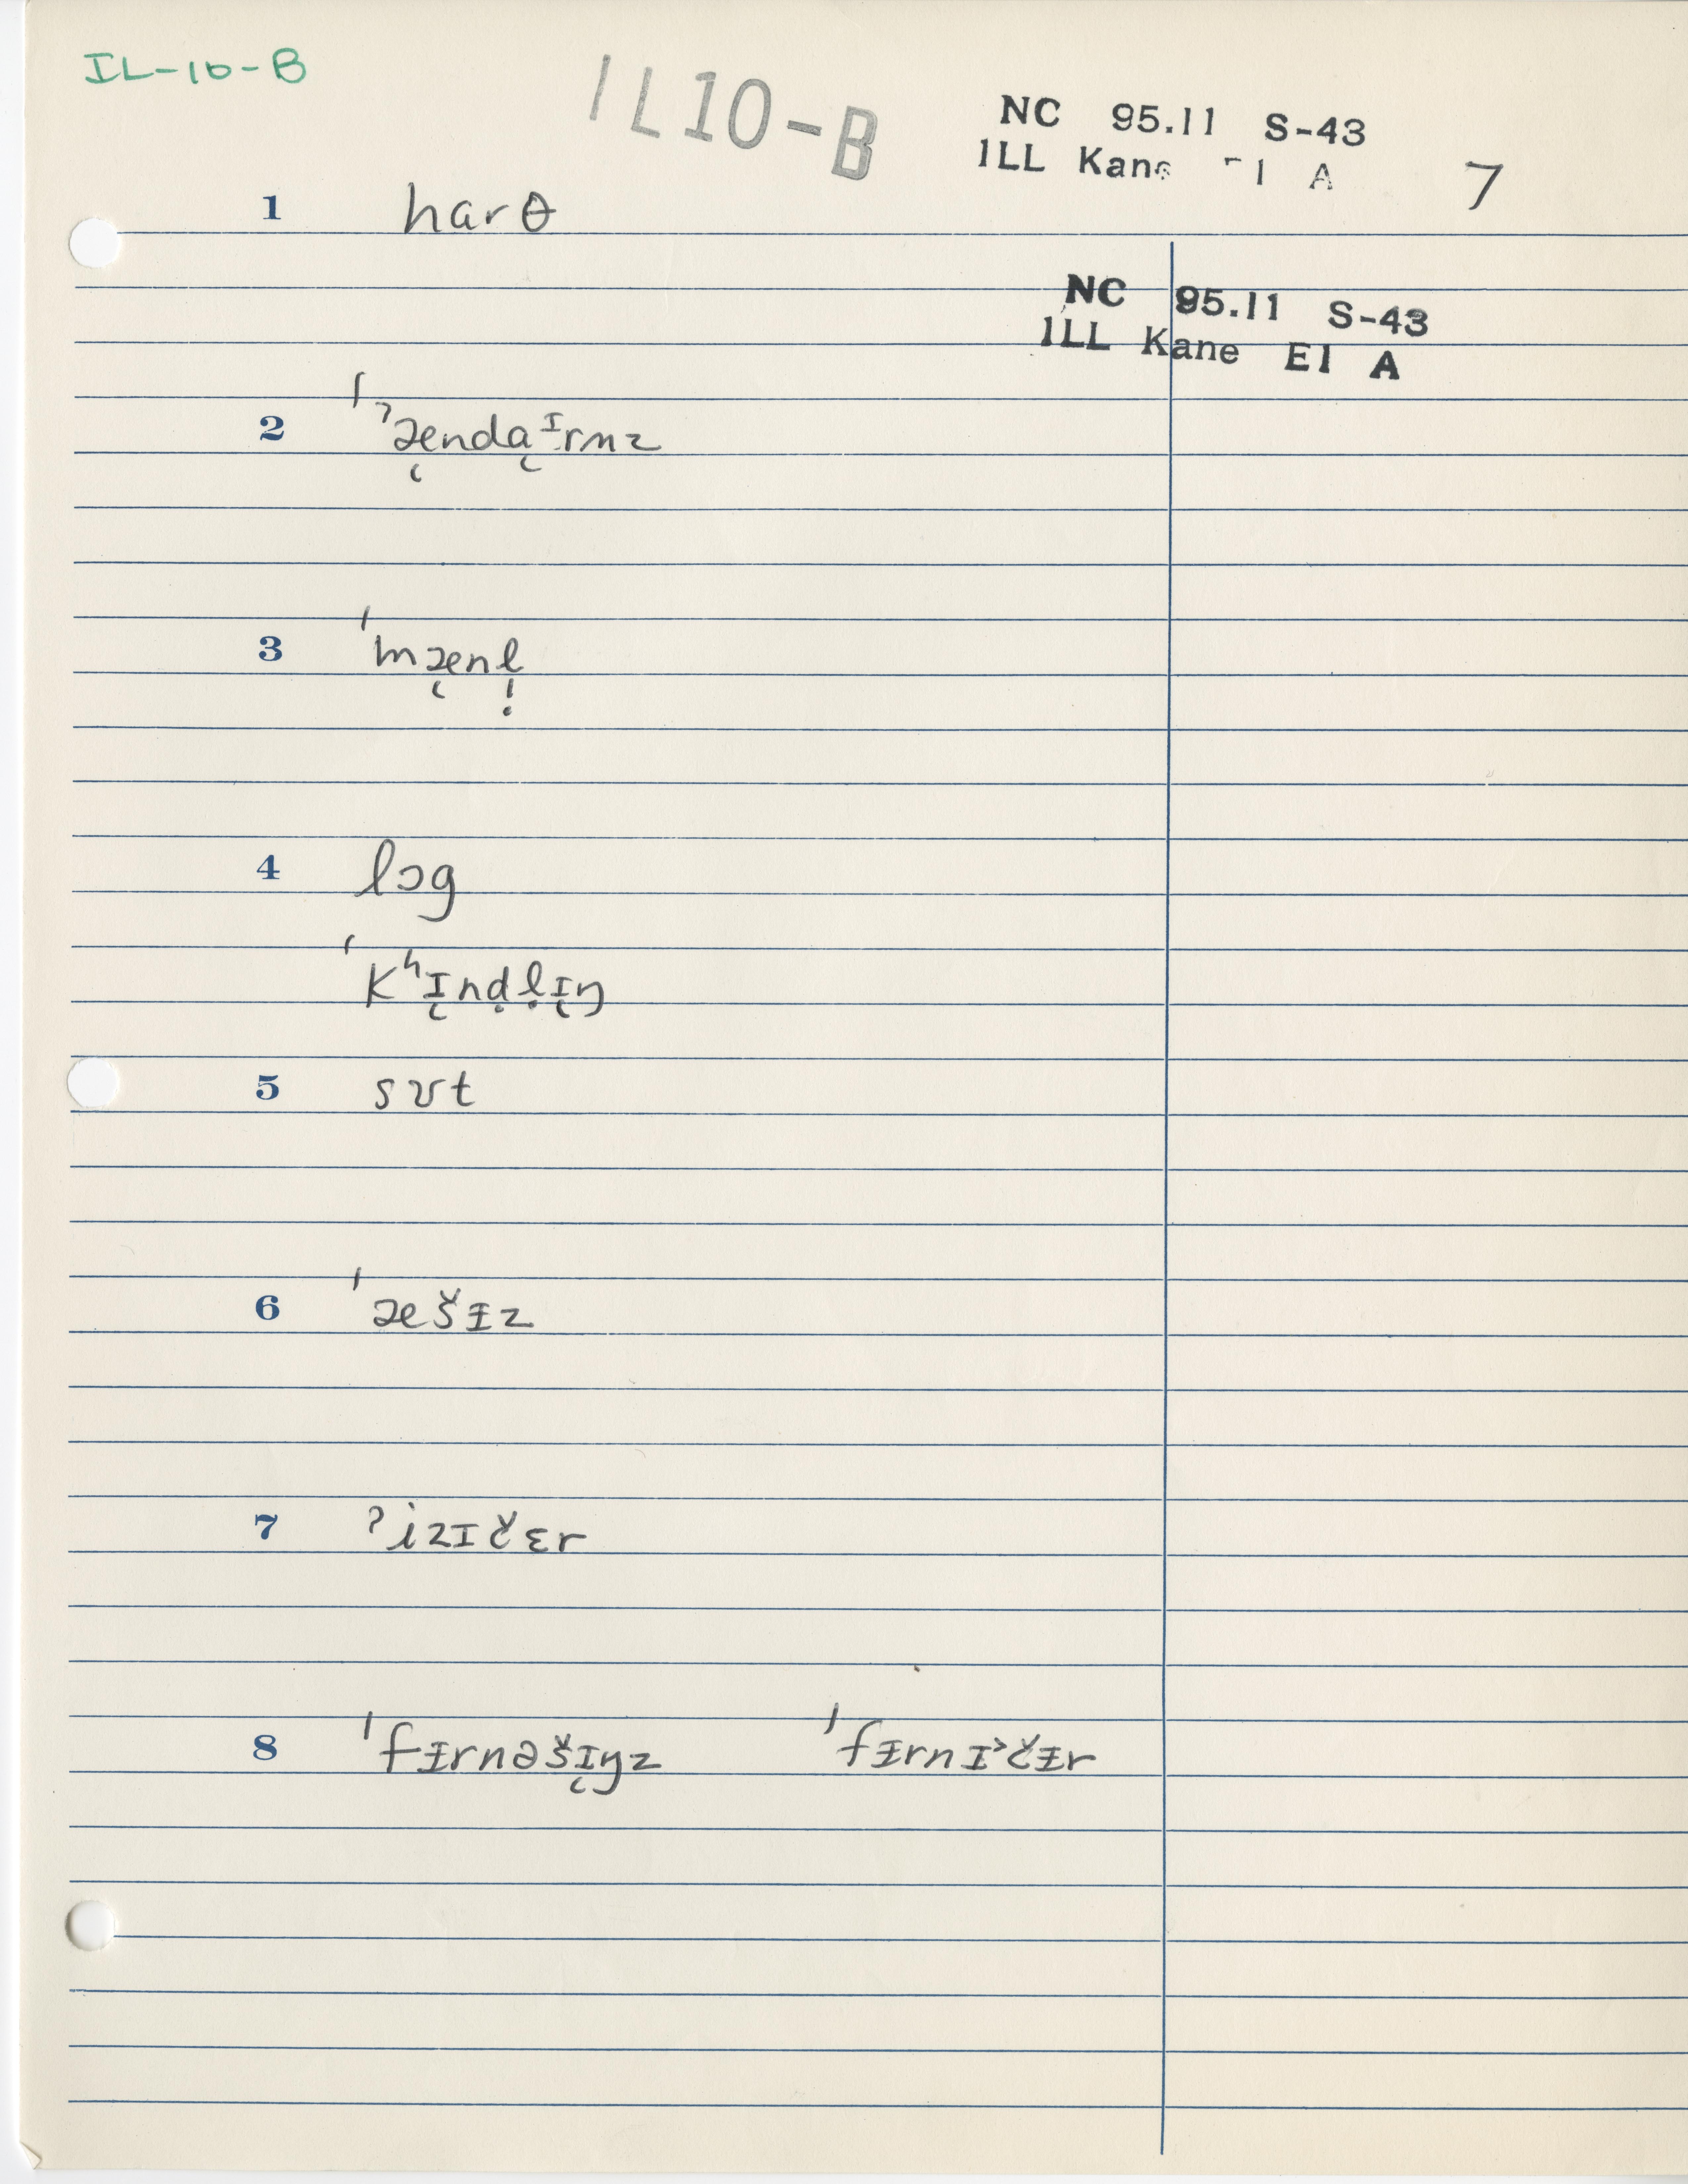 IL-10-B
IL10-B
NC 95.11 S-43
ILL Kane El A
7
1 harθ
NC 95.11 S-43
ILL Kane El A
2 ˈˀæ̨nda̢ᶦrnz
3 ˈmæ̨nl̩
4 lɔg
ˈkʰɪ̨nḍḷɪ̨ŋ
5 sʊt
6 ˈæšɨz
7 ˀizɪčɛr
8 ˈfɨrnəšɪ̨ŋz ˈfɨrnɪ˃čɨr